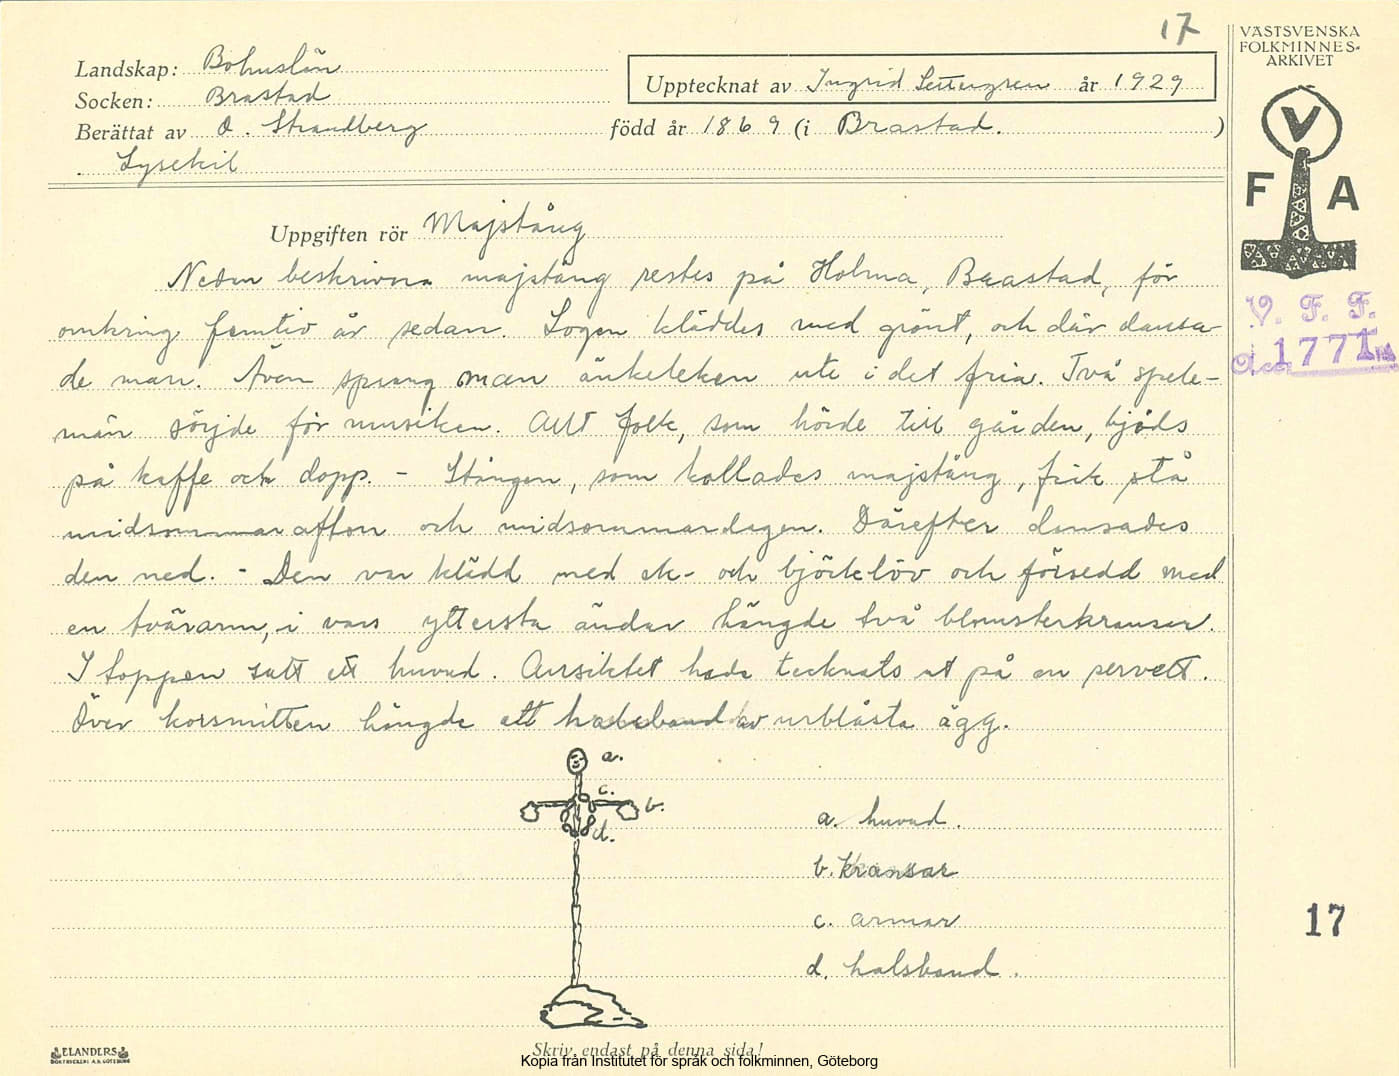 17
VÄSTSVENSKA
FOLKMINNES-
ARKIVET
V
F A
V. F. F.
Acc. 1771
17
Landskap: Bohuslän
Socken: Brastad
Upptecknat av Ingrid år 1929
Berättat av O. Strandberg född år 1869 (i Brastad. )
Lysekil
Uppgiften rör Majstång
Nedan beskrivna majstång restes på Holma, Brastad, för
omkring femtio år sedan. Logen kläddes med grönt, och där dansa-
de man. Även sprang man änkeleken ute i det fria. Två spele-
män sörjde för musiken. Allt folk, som hörde till gården, bjöds
på kaffe och dopp. - Stången, som kallades majstång, fick stå
midsommarafton och midsommardagen. Därefter dansades
den ned. - Den var klädd med ek- och björklöv och försedd med
en tvärarm, i vars yttersta ändar hängde två blomsterkransar.
I toppen satt ett huvud. Ansiktet hade tecknats ut på en servett.
Över korsmitten hängde ett halsband av urblåsta ägg.
a.
c.
b.
d.
a. huvud.
b. kransar
c. armar
d. halsband.
ELANDERS
BOKTRYCKERI A.B. GÖTEBORG
Skriv endast på denna sida!
Kopia från Institutet för språk och folkminnen, Göteborg